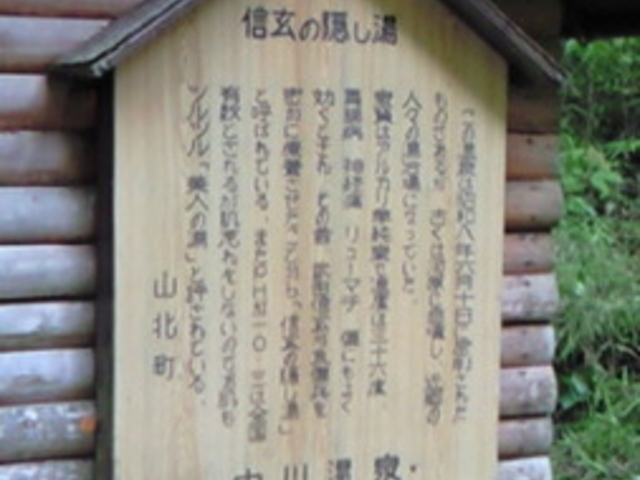 信玄の隠し湯
この温泉は昭和八年六月十日に
ものであるが 古くは河原に湧出し、近郷の
人々の湯治場になっていた。
泉質はアルカリ単純泉で温度は三十六度
胃腸病 神経痛 リューマチ 傷にもよく
効くとされ その昔 武田信玄が負傷兵を
密かに療養させたことから、「信玄の隠し湯」
と呼ばれている。またPHは一〇・三は全国
有数とされるが肌荒れをしないので
ツルツル「美人の湯」と呼ばれている。
山北町
中川温泉